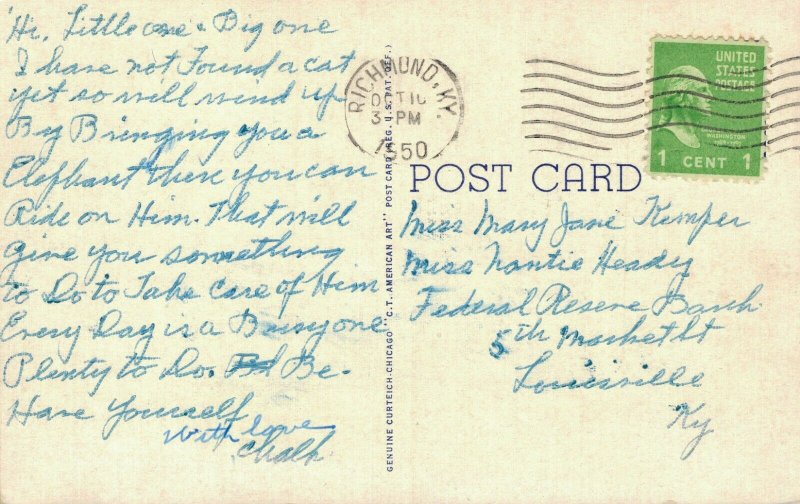 Hi, Little one & Big one
I have not Found a cat
yet so will wind up
By Bringing you a
Elephant then you can
Ride on Him. That will
give you something
to Do to Take care of Him
Every Day is a Busy one
Plenty to Do. Be-
Have Yourself
With love
Chalk
GENUINE CURTEICH-CHICAGO "C.T. AMERICAN ART" POST CARD (REG. U.S. PAT. OFF.)
RICHMOND, KY.
OCT 10
3 PM
1950
UNITED
STATES
POSTAGE
WASHINGTON
1 CENT 1
POST CARD
Miss Mary Jane Kemper
Miss Nantie Heady
Federal Reserve Bank
5th Market St
Louisville
Ky